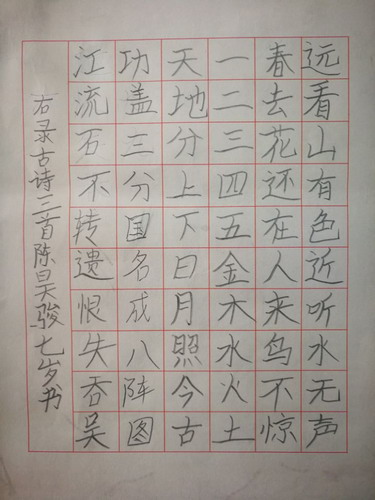 远看山有色近听水无声
春去花还在人来鸟不惊
一二三四五金木水火土
天地分上下日月照今古
功盖三分国名成八阵图
江流石不转遗恨失吞吴
右录古诗三首陈昊骏七岁书